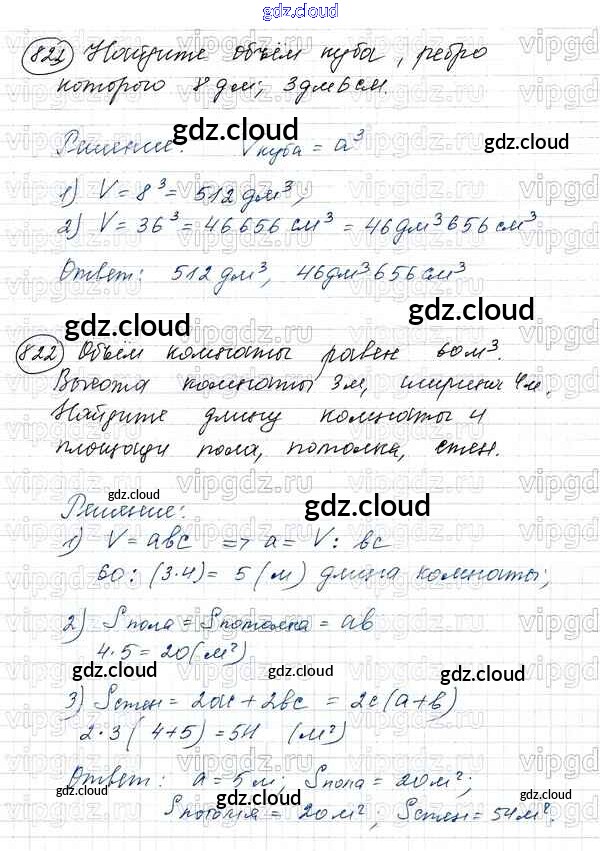 gdz.cloud
821 Найдите объём куба, ребро
которого 8 дм; 3 дм 6 см.
gdz.cloud gdz.cloud
Решение: Vкуба = a³
1) V = 8³ = 512 дм³,
2) V = 36³ = 46656 см³ = 46 дм³ 656 см³
Ответ: 512 дм³, 46 дм³ 656 см³
gdz.cloud gdz.cloud
822 Объём комнаты равен 60 м³.
Высота комнаты 3 м, ширина 4 м.
Найдите длину комнаты и
площади пола, потолка, стен.
gdz.cloud
Решение: gdz.cloud
1) V = abc => a = V : bc
60 : (3·4) = 5 (м) длина комнаты;
2) Sпола = Sпотолка = ab
4·5 = 20 (м²)
gdz.cloud gdz.cloud
3) Sстен = 2ac + 2bc = 2c (a + b)
2·3 (4+5) = 54 (м²)
Ответ: a = 5 м; Sпола = 20 м²;
gdz.cloud gdz.cloud gdz.cloud
Sпотолка = 20 м²; Sстен = 54 м².